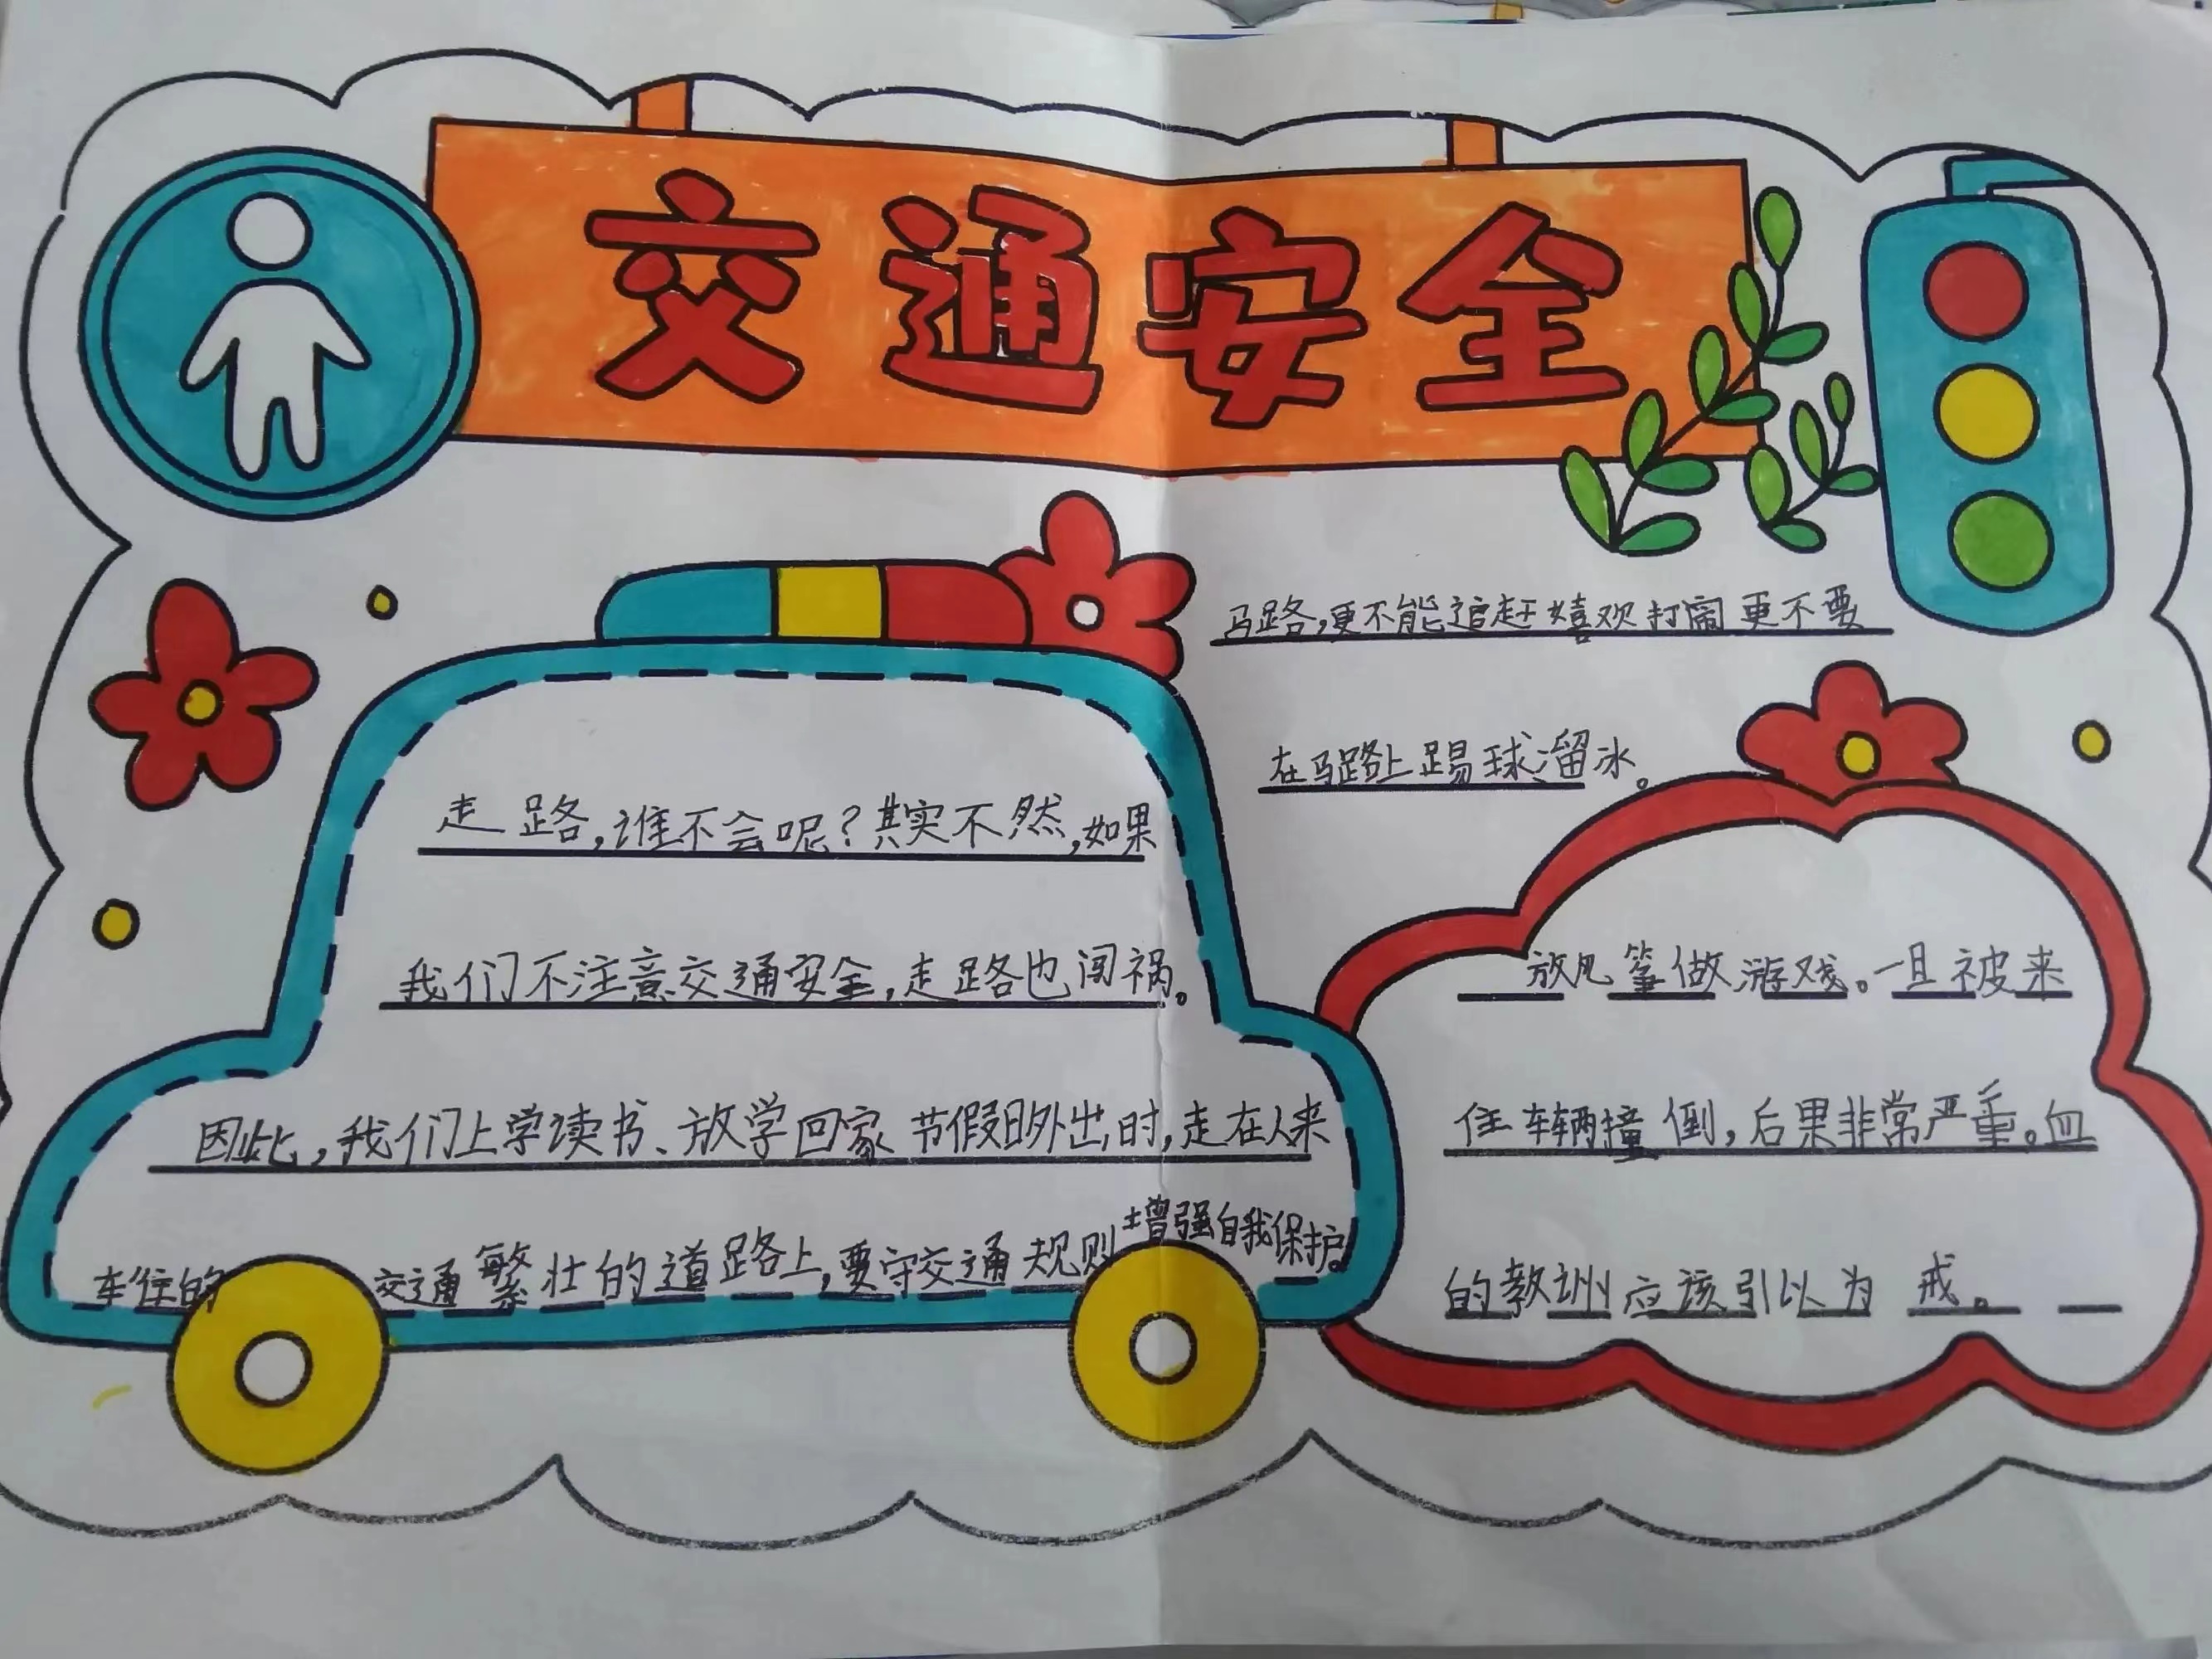 交通安全
走路,谁不会呢?其实不然,如果
我们不注意交通安全,走路也闯祸。
因此,我们上学读书、放学回家节假日外出时,走在人来
车往的交通繁壮的道路上,要守交通规则增强自我保护。
马路,更不能追赶嬉欢打闹更不要
在马路上踢球溜冰。
放风筝做游戏。一旦被来
住车辆撞倒,后果非常严重。血
的教训应该引以为戒。